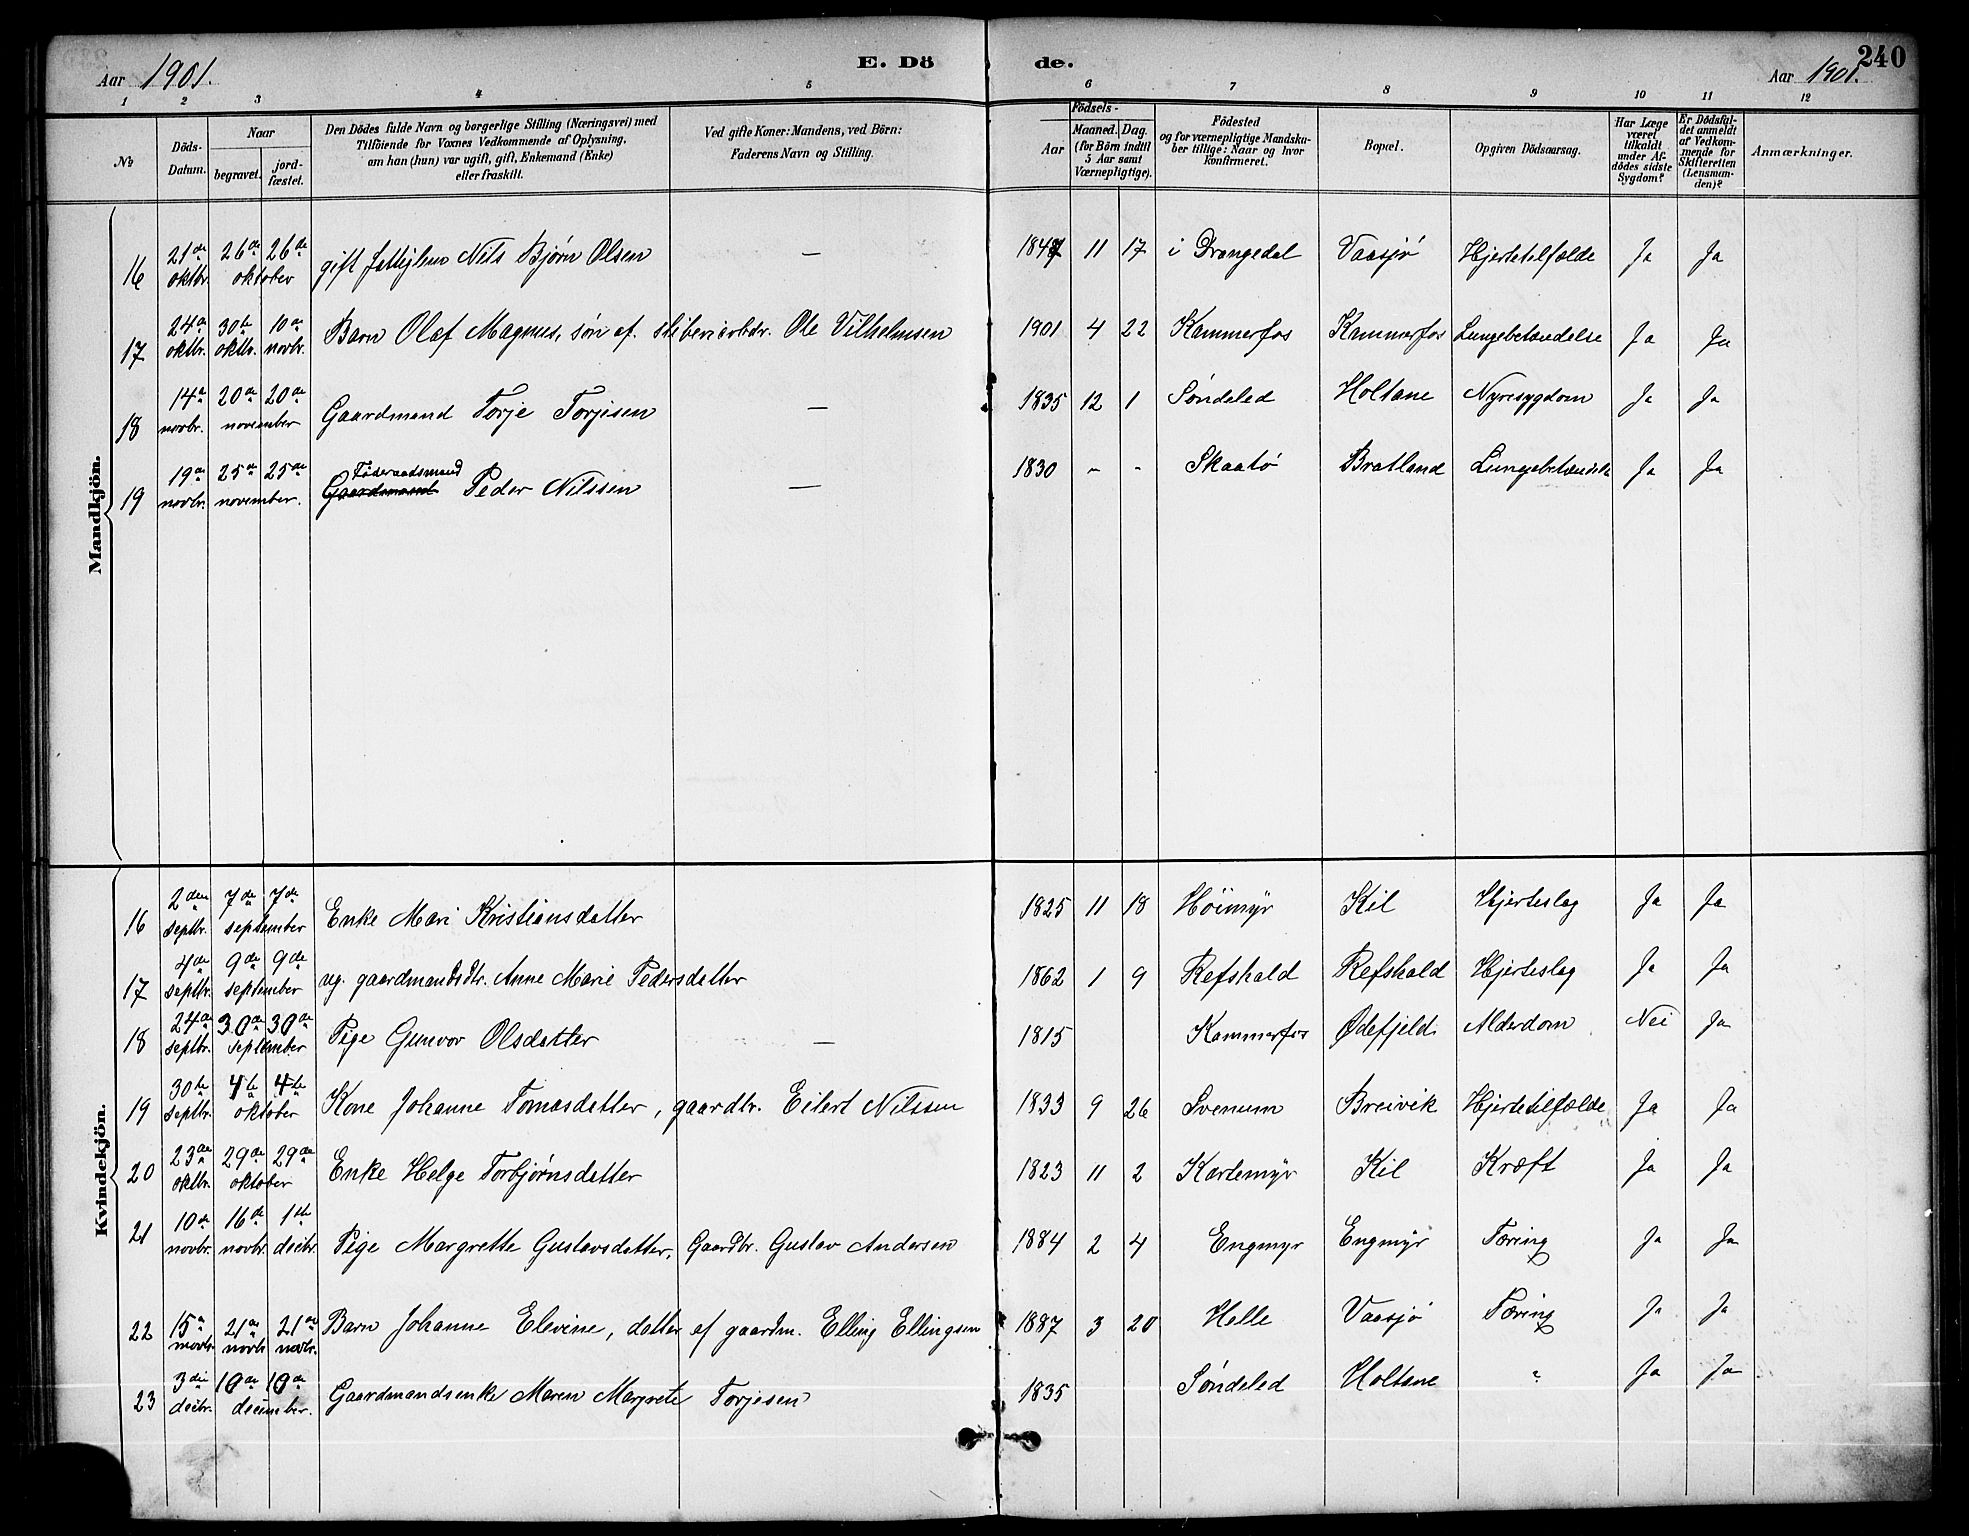 Aar 1901.
E. Dö
de.
Aar 1901.
240
1 2 3 4 5 6 7 8 9 10 11 12
No
Döds-Datum.
Naar
begravet.
jord-fæstet.
Den Dödes fulde Navn og borgerlige Stilling (Næringsvei) med
Tilföiende for Voxnes Vedkommende af Oplysning,
om han (hun) var ugift, gift, Enkemand (Enke)
eller fraskilt.
Ved gifte Koner: Mandens, ved Börn:
Faderens Navn og Stilling.
Födsels-
Aar
Maaned. Dag.
(for Börn indtil
5 Aar samt
Værnepligtige).
Födested
og for værnepligtige Mandsku-
ber tillige: Naar og hvor
konfirmeret.
Bopæl.
Opgiven Dödsaarsag.
Har Læge
været
tilkaldt
under Af-
dödes sidste
Sygdom?
Er Dödsfal-
det anmeldt
af Vedkom-
mende for
Skifteretten
(Lensman-
den)?
Anmærkninger.
Mandkjön.
16 21de oktbr. 26de 26de oktober gift Nils Bjørn Olsen — 1847 11 17 i Drangedal Vaasjø Hjertetilfælde Ja Ja
17 24de oktbr. 30te oktbr. 10de novbr. Barn Olaf Magnus, søn af sliberiarbdr. Ole Vilhelmsen 1901 4 22 Kammerfos Kammerfos Lungebetændelse Ja Ja
18 14de novbr. 20de 20de november Gaardmand Torje Torjesen — 1835 12 1 Søndeled Holtane Nyresygdom Ja Ja
19 19de novbr. 25de 25de november. Føderaadsmand Gaardmand Peder Nilssen — 1830 - - Skaatø Bratland Lungebetændelse Ja Ja
Kvindekjön.
16 2den septbr. 7de 7de september Enke Mari Kristiansdatter 1825 11 18 Høimyr Kil Hjerteslag Ja Ja
17 4de septbr. 9de 9de september ug. gaardmandsdtr. Anne Marie Pedersdatter 1862 1 9 Refshald Refshald Hjerteslag Ja Ja
18 24de septbr. 30de 30de september Pige Gunvor Olsdatter — 1815 Kammerfos Ødefjeld Alderdom Nei Ja
19 30te septbr. 4de 4de oktober Kone Johanne Tomasdatter, gaardbr. Eilert Nilssen 1833 9 26 Svenum Breivik Hjertetilfælde Ja Ja
20 23de oktbr. 29de 29de oktober Enke Helge Torbjørnsdatter 1823 11 2 Kartemyr Kil Kræft Ja Ja
21 10de novbr. 16de novbr. 1ste decbr. Pige Margrette Gustavsdatter, Gaardbr. Gustav Andersen 1884 2 4 Engmyr Engmyr Tæring Ja Ja
22 15de novbr. 21de novbr. 21de novbr. Barn Johanne Elevine, datter af gaardm. Elling Ellingsen 1887 3 20 Helle Vaasjø Tæring Ja Ja
23 3die decbr. 10de 10de december. Gaardmandsenke Maren Margrete Torjesen 1835 Søndeled Holtane ? Ja Ja